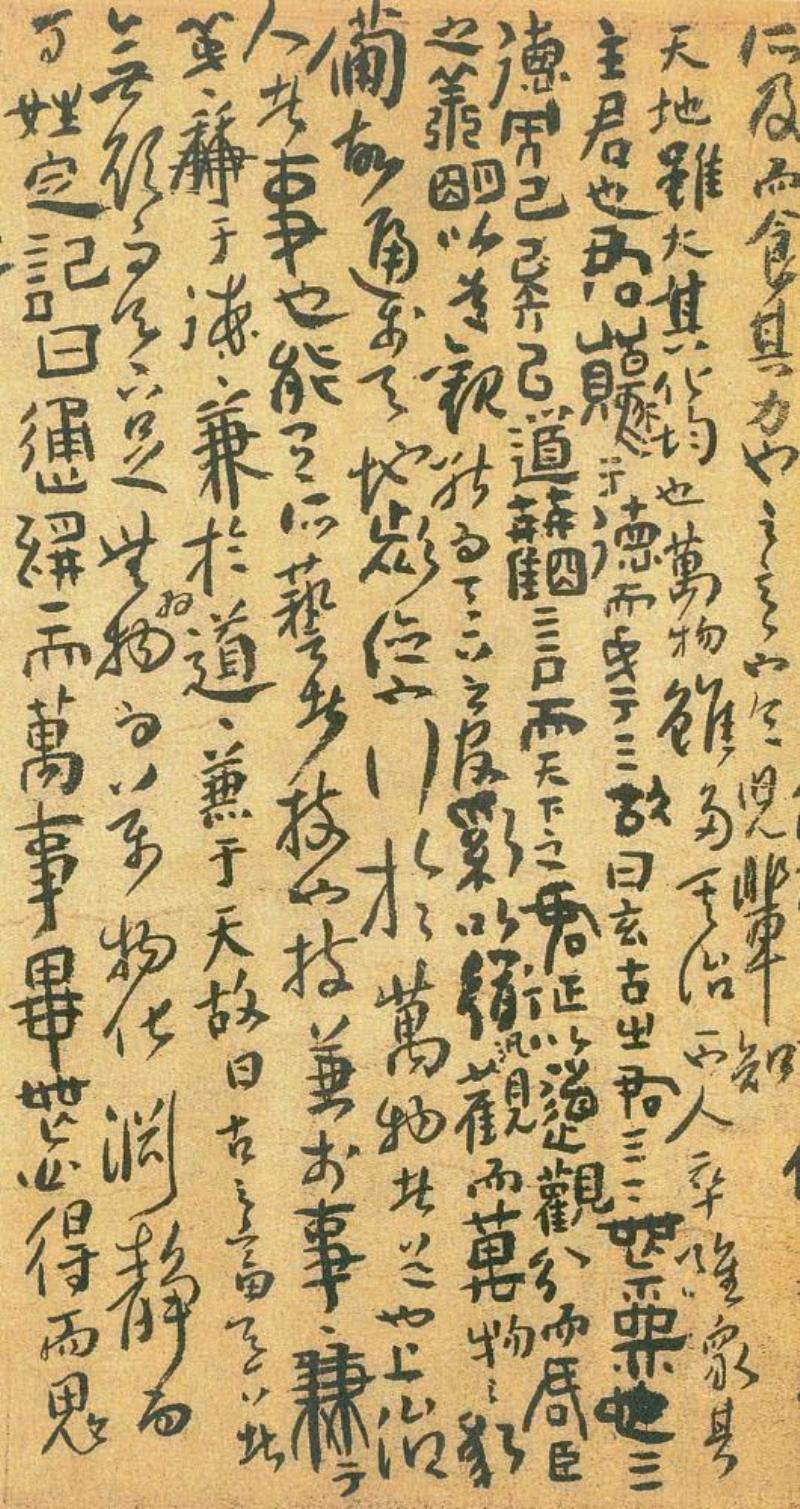 所及而食其力也
天地雖大其化均也萬物雖多其治一也人卒雖衆其
主君也君原于德而成于天故曰玄古之君天下無為也天
德而已矣以道觀言而天下之君正以道觀分而君臣
之義明以道觀能而天下之官治以道汎觀而萬物之應
備故通於天地者德也行於萬物者道也上治
人者事也能有所藝者技也技兼於事、兼于
義、兼于德、兼於道、兼于天故曰古之畜天下者
無欲而天下足無為而萬物化淵靜而
百姓定記曰通於一而萬事畢無心得而鬼